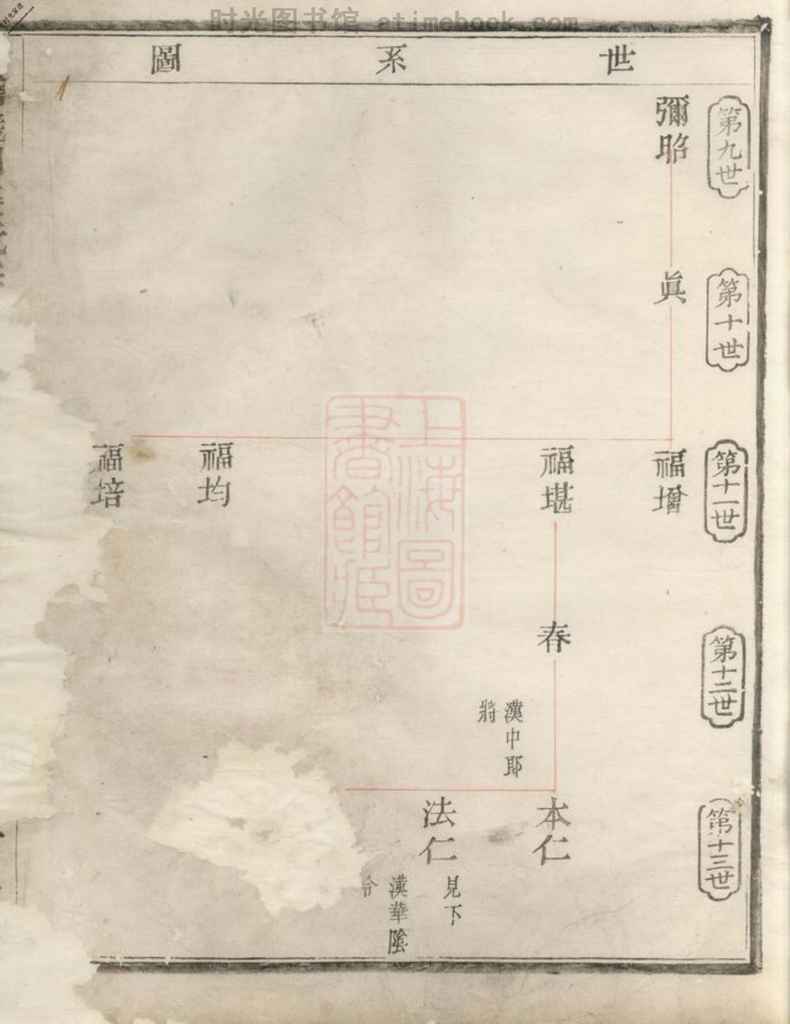 时光图书馆 atimebook.com
世系圖
第九世
彌昭
第十世
眞
第十一世
福增
福堪
福均
福培
第十二世
春
漢中郎
將
第十三世
本仁
見下
法仁
漢華陰
令
上海圖
書館藏